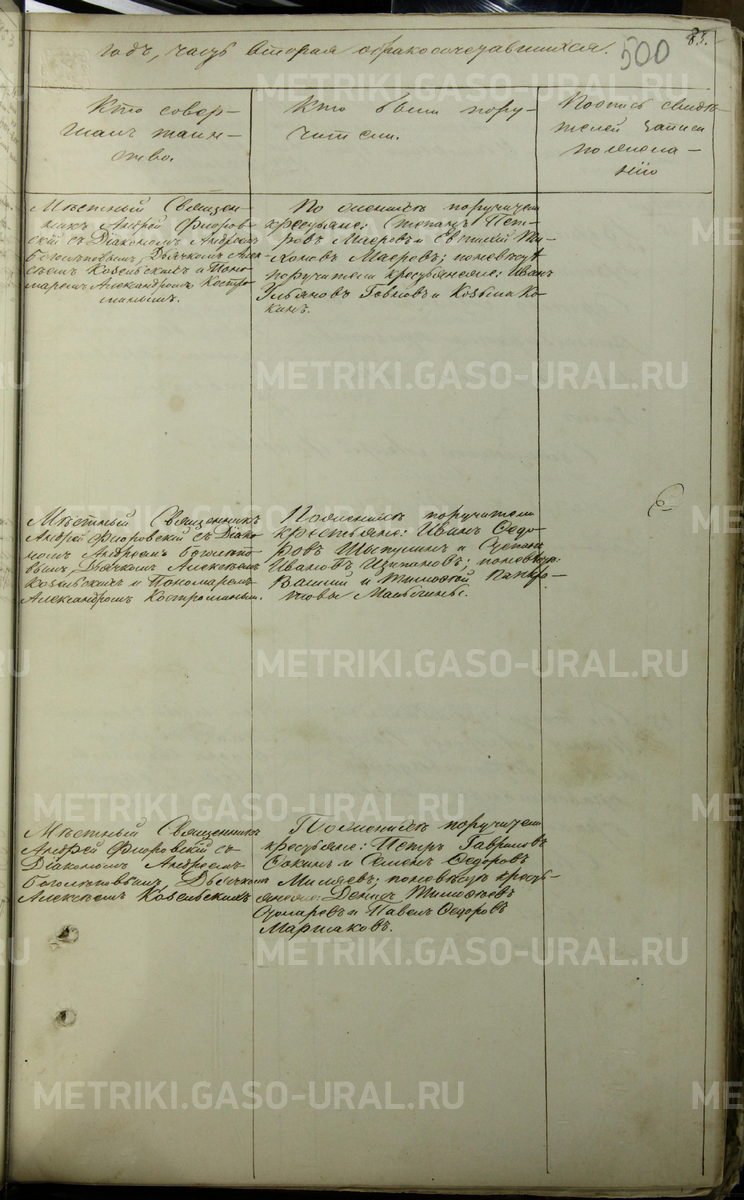 годъ, часть вторая о бракосочетавшихся.
500
83.
Кто совер-
шалъ таин-
ство.
Кто были пору-
чители.
Подпись свидѣ-
телей записи
по желанію
Мѣстный Священ-
никъ Андрей Флоров-
скій съ Діакономъ Андреемъ
Боголѣповымъ, Дьячкомъ Алек-
сѣемъ Козельскимъ и Поно-
маремъ Александромъ Костро-
минымъ.
По женихѣ поручители
крестьяне: Степанъ Пет-
ровъ и Евгеній Ти-
хоновъ; по невѣстѣ
поручители крестьяне: Иванъ
Ульяновъ и Козьма Ко-
кинъ.
Мѣстный Священникъ
Андрей Флоровскій съ Діако-
номъ Андреемъ Боголѣпо-
вымъ, Дьячкомъ Алексѣемъ
Козельскимъ и Пономаремъ
Александромъ Костроминымъ.
По женихѣ поручители
крестьяне: Иванъ Ѳедо-
ровъ и Степанъ
Ивановъ; по невѣстѣ:
Василій и Тимофей Панкра-
товы
Мѣстный Священникъ
Андрей Флоровскій съ
Діакономъ Андреемъ
Боголѣповымъ, Дьячкомъ
Алексѣемъ Козельскимъ
По женихѣ поручители
крестьяне: Петръ Гавриловъ
и Семенъ Ѳедоровъ
Миляевъ; по невѣстѣ кресть-
яне: Денисъ Тимофѣевъ
и Павелъ Ѳедоровъ
Маршаковъ.
METRIKI.GASO-URAL.RU